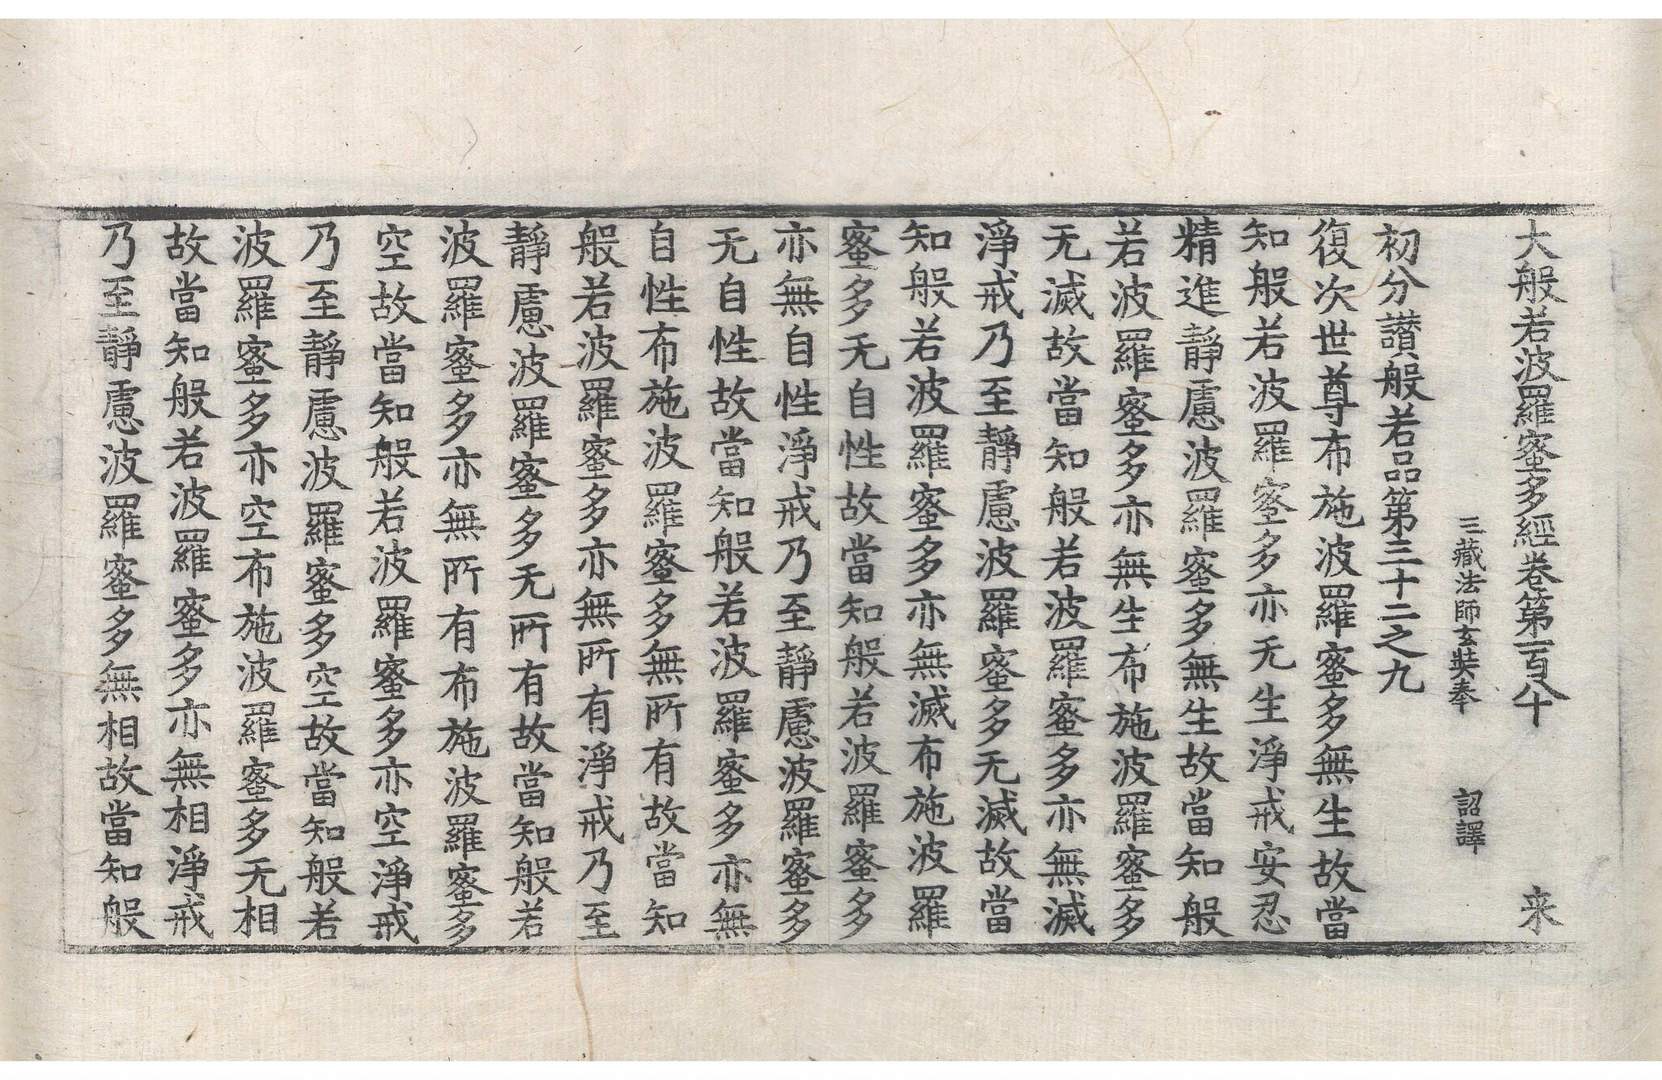 大般若波羅蜜多經卷第一百八十 来
三藏法師玄奘奉 詔譯
初分讃般若品第三十二之九
復次世尊布施波羅蜜多無生故當
知般若波羅蜜多亦无生淨戒安忍
精進靜慮波羅蜜多無生故當知般
若波羅蜜多亦無生布施波羅蜜多
无滅故當知般若波羅蜜多亦無滅
淨戒乃至靜慮波羅蜜多无滅故當
知般若波羅蜜多亦無滅布施波羅
蜜多无自性故當知般若波羅蜜多
亦無自性淨戒乃至靜慮波羅蜜多
无自性故當知般若波羅蜜多亦無
自性布施波羅蜜多無所有故當知
般若波羅蜜多亦無所有淨戒乃至
靜慮波羅蜜多无所有故當知般若
波羅蜜多亦無所有布施波羅蜜多
空故當知般若波羅蜜多亦空淨戒
乃至靜慮波羅蜜多空故當知般若
波羅蜜多亦空布施波羅蜜多无相
故當知般若波羅蜜多亦無相淨戒
乃至靜慮波羅蜜多無相故當知般